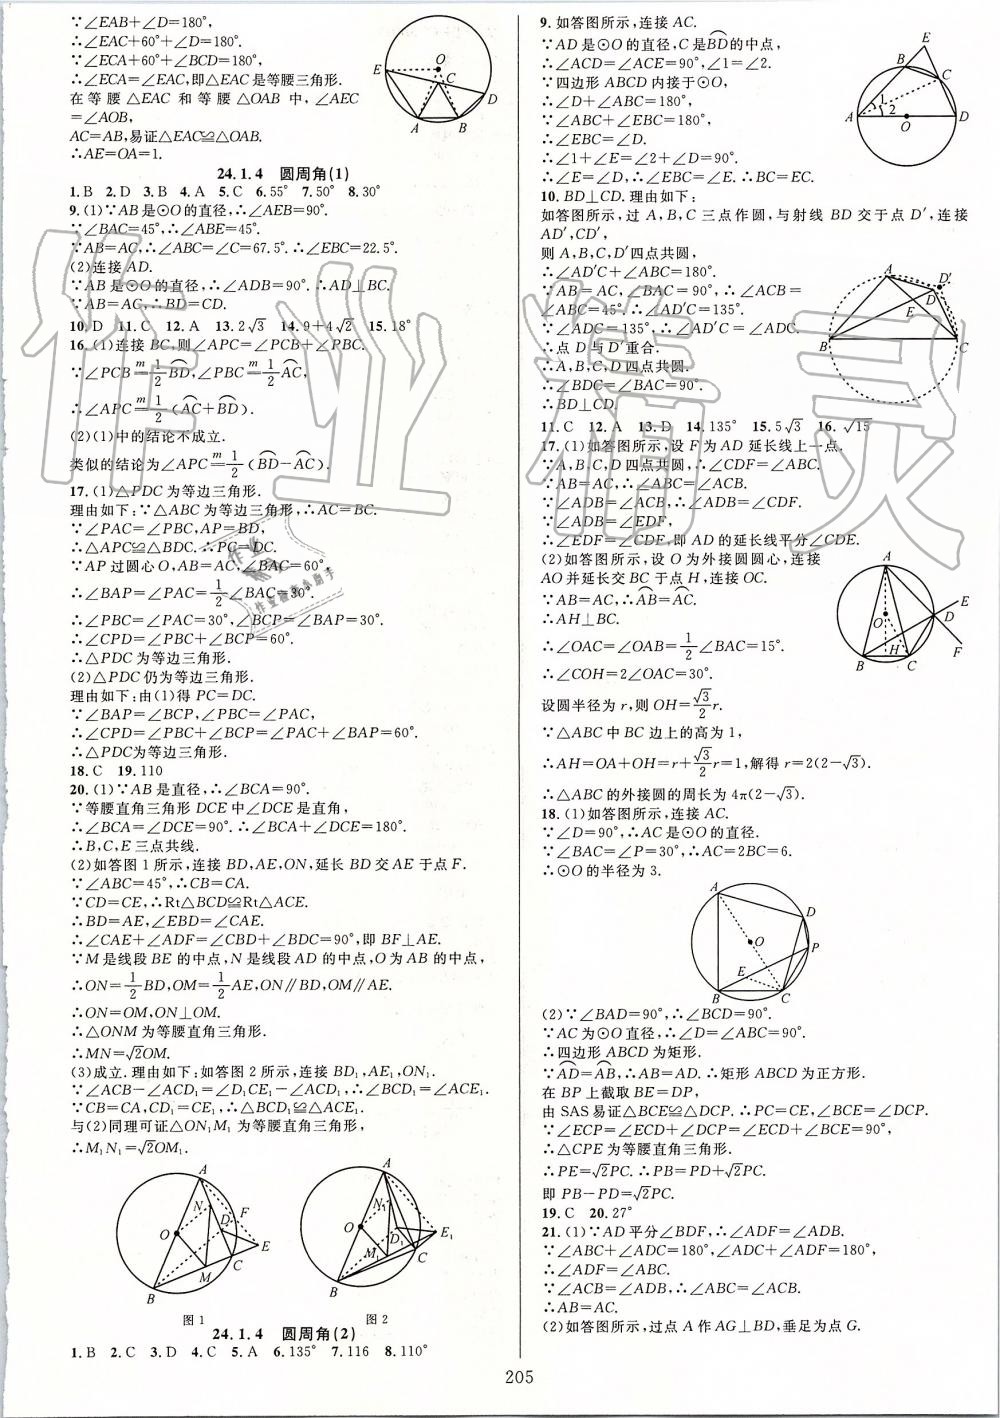 ∵∠EAB+∠D=180°,
∴∠EAC+60°+∠D=180°.
∵∠ECA+60°+∠BCD=180°,
∴∠ECA=∠EAC,即△EAC是等腰三角形.
在等腰△EAC和等腰△OAB中,∠AEC
=∠AOB,
AC=AB,易证△EAC≌△OAB.
∴AE=OA=1.
24.1.4 圆周角(1)
1.B 2.D 3.B 4.A 5.C 6.55° 7.50° 8.30°
9.(1)∵AB是⊙O的直径,∴∠AEB=90°.
∵∠BAC=45°,∴∠ABE=45°.
∵AB=AC,∴∠ABC=∠C=67.5°.∴∠EBC=22.5°.
(2)连接AD.
∵AB是⊙O的直径,∴∠ADB=90°.∴AD⊥BC.
∵AB=AC,∴BD=CD.
10.D 11.C 12.A 13.2√3 14.9+4√2 15.18°
16.(1)连接BC,则∠APC=∠PCB+∠PBC.
∵∠PCB m= 1/2 BD⌒,∠PBC m= 1/2 AC⌒,
∴∠APC m= 1/2 (AC⌒+BD⌒).
(2)(1)中的结论不成立.
类似的结论为∠APC m= 1/2 (BD⌒-AC⌒).
17.(1)△PDC为等边三角形.
理由如下:∵△ABC为等边三角形,∴AC=BC.
∵∠PAC=∠PBC,AP=BD,
∴△APC≌△BDC.∴PC=DC.
∵AP过圆心O,AB=AC,∠BAC=60°,
∴∠BAP=∠PAC=1/2∠BAC=30°.
∴∠PBC=∠PAC=30°,∠BCP=∠BAP=30°.
∴∠CPD=∠PBC+∠BCP=60°.
∴△PDC为等边三角形.
(2)△PDC仍为等边三角形.
理由如下:由(1)得PC=DC.
∵∠BAP=∠BCP,∠PBC=∠PAC,
∴∠CPD=∠PBC+∠BCP=∠PAC+∠BAP=60°.
∴△PDC为等边三角形.
18.C 19.110
20.(1)∵AB是直径,∴∠BCA=90°.
∵等腰直角三角形DCE中∠DCE是直角,
∴∠BCA=∠DCE=90°.∴∠BCA+∠DCE=180°.
∴B,C,E三点共线.
(2)如答图1所示,连接BD,AE,ON,延长BD交AE于点F.
∵∠ABC=45°,∴CB=CA.
∵CD=CE,∴Rt△BCD≌Rt△ACE.
∴BD=AE,∠EBD=∠CAE.
∴∠CAE+∠ADF=∠CBD+∠BDC=90°,即BF⊥AE.
∵M是线段BE的中点,N是线段AD的中点,O为AB的中点,
∴ON=1/2BD,OM=1/2AE,ON∥BD,OM∥AE.
∴ON=OM,ON⊥OM.
∴△ONM为等腰直角三角形.
∴MN=√2OM.
(3)成立.理由如下:如答图2所示,连接BD₁,AE₁,ON₁.
∵∠ACB-∠ACD₁=∠D₁CE₁-∠ACD₁,∴∠BCD₁=∠ACE₁.
∵CB=CA,CD₁=CE₁,∴△BCD₁≌△ACE₁.
与(2)同理可证△ON₁M₁为等腰直角三角形,
∴M₁N₁=√2OM₁.
图1 图2
24.1.4 圆周角(2)
1.B 2.C 3.D 4.C 5.A 6.135° 7.116 8.110°
9.如答图所示,连接AC.
∵AD是⊙O的直径,C是BD⌒的中点,
∴∠ACD=∠ACE=90°,∠1=∠2.
∵四边形ABCD内接于⊙O,
∴∠D+∠ABC=180°,
∵∠ABC+∠EBC=180°,
∴∠EBC=∠D.
∵∠1+∠E=∠2+∠D=90°.
∴∠E=∠D,∴∠EBC=∠E.∴BC=EC.
10.BD⊥CD.理由如下:
如答图所示,过A,B,C三点作圆,与射线BD交于点D′,连接
AD′,CD′,
则A,B,C,D′四点共圆.
∴∠AD′C+∠ABC=180°.
∵AB=AC,∠BAC=90°,∴∠ACB=
∠ABC=45°.∴∠AD′C=135°.
∵∠ADC=135°,∴∠AD′C=∠ADC.
∴点D与D′重合.
∴A,B,C,D四点共圆.
∴∠BDC=∠BAC=90°.
∴BD⊥CD.
11.C 12.A 13.D 14.135° 15.5√3 16.√15
17.(1)如答图所示,设F为AD延长线上一点.
∵A,B,C,D四点共圆,∴∠CDF=∠ABC.
∵AB=AC,∴∠ABC=∠ACB.
∵∠ADB=∠ACB,∴∠ADB=∠CDF.
∵∠ADB=∠EDF,
∴∠EDF=∠CDE,即AD的延长线平分∠CDE.
(2)如答图所示,设O为外接圆圆心,连接
AO并延长交BC于点H,连接OC.
∵AB=AC,∴AB⌒=AC⌒.
∴AH⊥BC.
∴∠OAC=∠OAB=1/2∠BAC=15°.
∴∠COH=2∠OAC=30°.
设圆半径为r,则OH=√3/2 r.
∵△ABC中BC边上的高为1,
∴AH=OA+OH=r+√3/2 r=1,解得r=2(2-√3).
∴△ABC的外接圆的周长为4π(2-√3).
18.(1)如答图所示,连接AC.
∵∠D=90°,∴AC是⊙O的直径.
∵∠BAC=∠P=30°,∴AC=2BC=6.
∴⊙O的半径为3.
(2)∵∠BAD=90°,∴∠BCD=90°.
∵AC为⊙O直径,∴∠D=∠ABC=90°.
∴四边形ABCD为矩形.
∵AD⌒=AB⌒,∴AB=AD.∴矩形ABCD为正方形.
在BP上截取BE=DP,
由SAS易证△BCE≌△DCP.∴PC=CE,∠BCE=∠DCP.
∵∠ECP=∠ECD+∠DCP=∠ECD+∠BCE=90°,
∴△CPE为等腰直角三角形.
∴PE=√2PC.∴PB=PD+√2PC.
即PB-PD=√2PC.
19.C 20.27°
21.(1)∵AD平分∠BDF,∴∠ADF=∠ADB.
∵∠ABC+∠ADC=180°,∠ADC+∠ADF=180°,
∴∠ADF=∠ABC.
∵∠ACB=∠ADB,∴∠ABC=∠ACB.
∴AB=AC.
(2)如答图所示,过点A作AG⊥BD,垂足为点G.
205